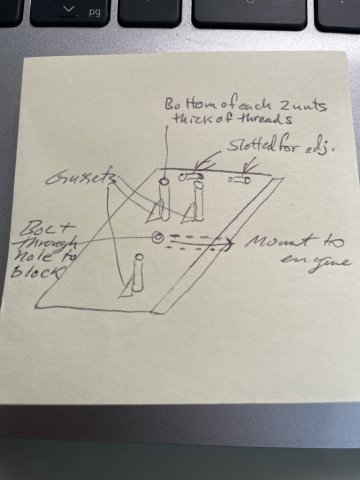 pg
Bottom of each 2 nuts
thick of threads
Slotted for adj.
Gussets
Bolt
through
hole to
block
Mount to
engine